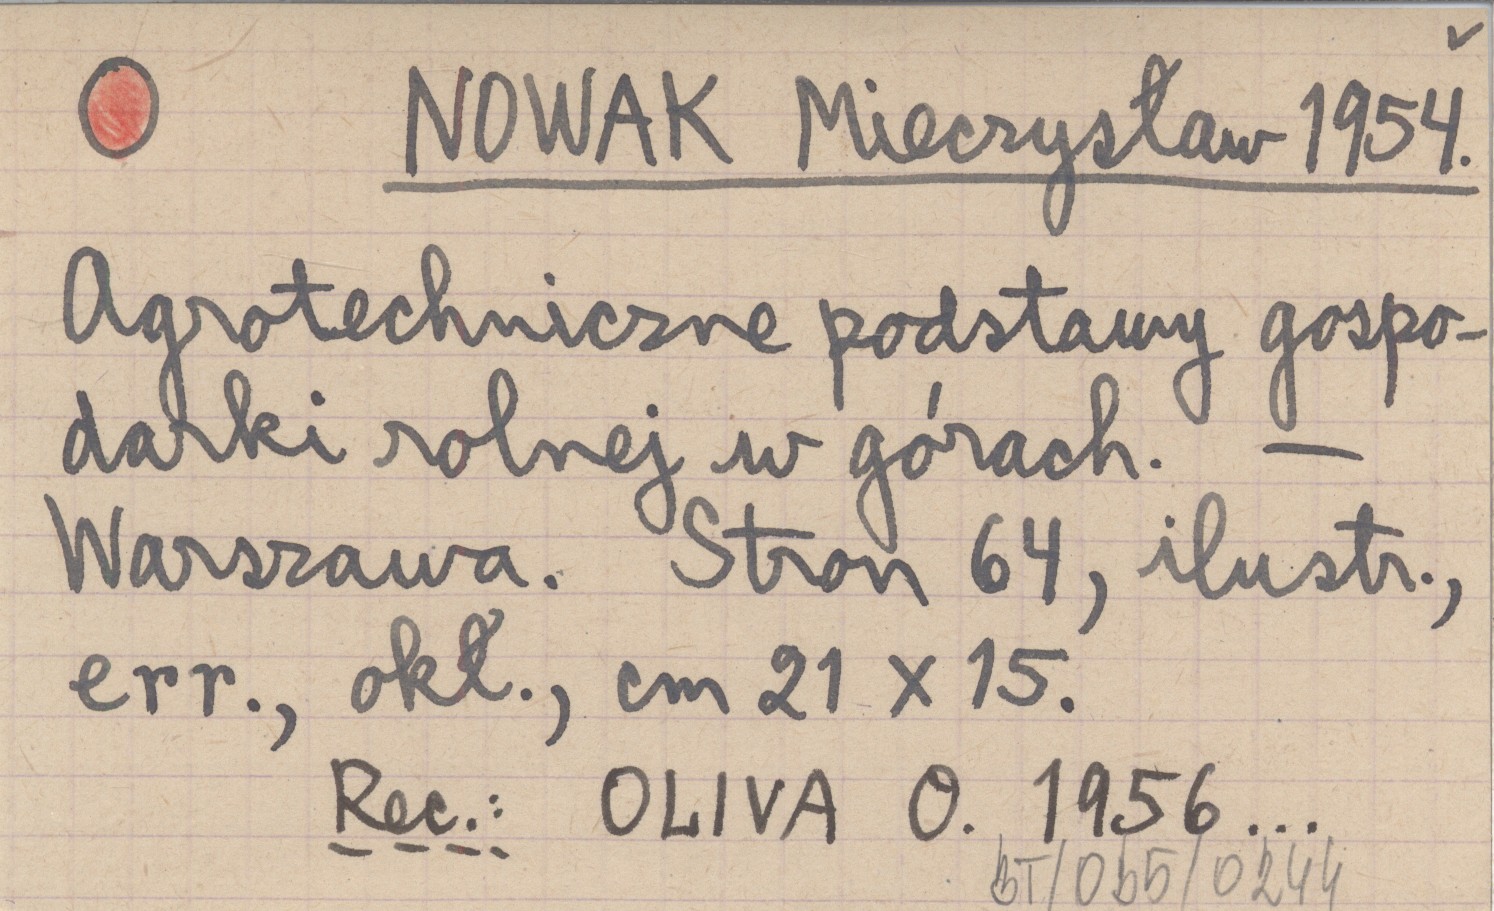 ✓
NOWAK Mieczysław 1954.
Agrotechniczne podstawy gospo-
darki rolnej w górach. —
Warszawa. Stron 64, ilustr.,
err., okł., cm 21 x 15.
Rec.: OLIVA O. 1956...